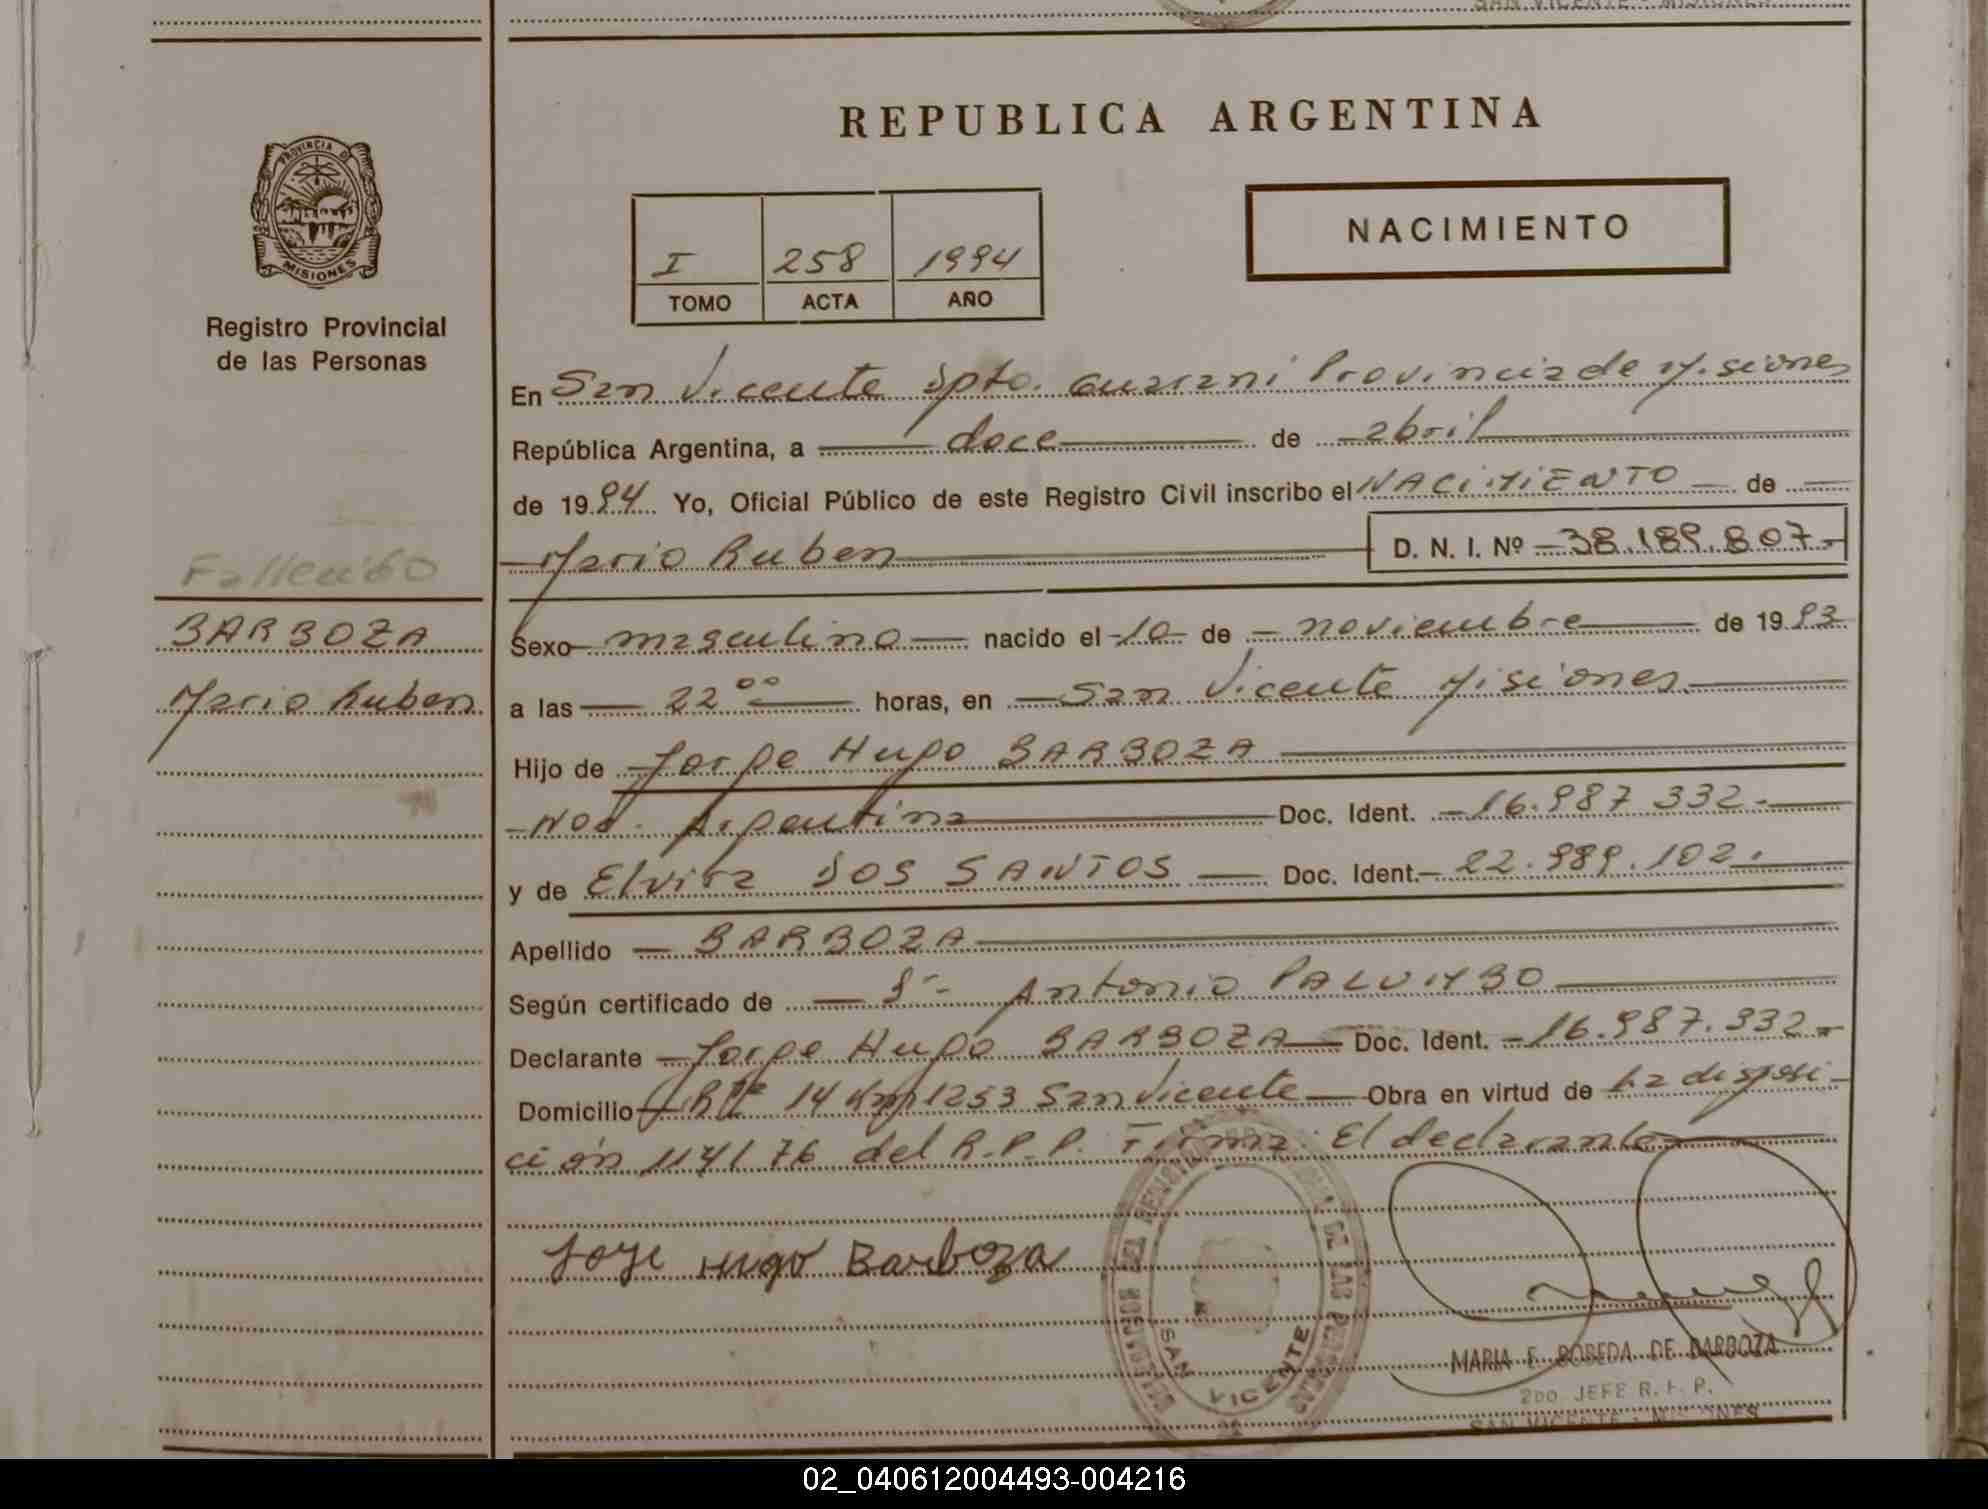 REPUBLICA ARGENTINA
PROVINCIA DE
MISIONES
Registro Provincial
de las Personas
I 258 1994
TOMO ACTA AÑO
NACIMIENTO
En San Vicente Dpto. Guarani Provincia de Misiones
República Argentina, a doce de abril
de 1994 Yo, Oficial Público de este Registro Civil inscribo el NACIMIENTO de
Mario Ruben D. N. I. Nº 38.189.807.-
Fallecido
BARBOZA
Mario Ruben
Sexo masculino nacido el 10 de noviembre de 1993
a las 22 00 horas, en San Vicente Misiones.
Hijo de Jorge Hugo BARBOZA
Nac. Argentina Doc. Ident. 16.987.332.-
y de Elvira DOS SANTOS Doc. Ident. 22.989.102.
Apellido BARBOZA
Según certificado de Dr. Antonio PALUMBO
Declarante Jorge Hugo BARBOZA Doc. Ident. 16.987.332.-
Domicilio Rta 14 Km 1253 San Vicente Obra en virtud de La disposi-
ción 114/76 del R.P.P. Firma: El declarante
Joge Hugo Barboza
SAN VICENTE
MARIA E. BOBEDA DE BARBOZA
2DO JEFE R. P. P.
SAN VICENTE - MISIONES
02_040612004493-004216